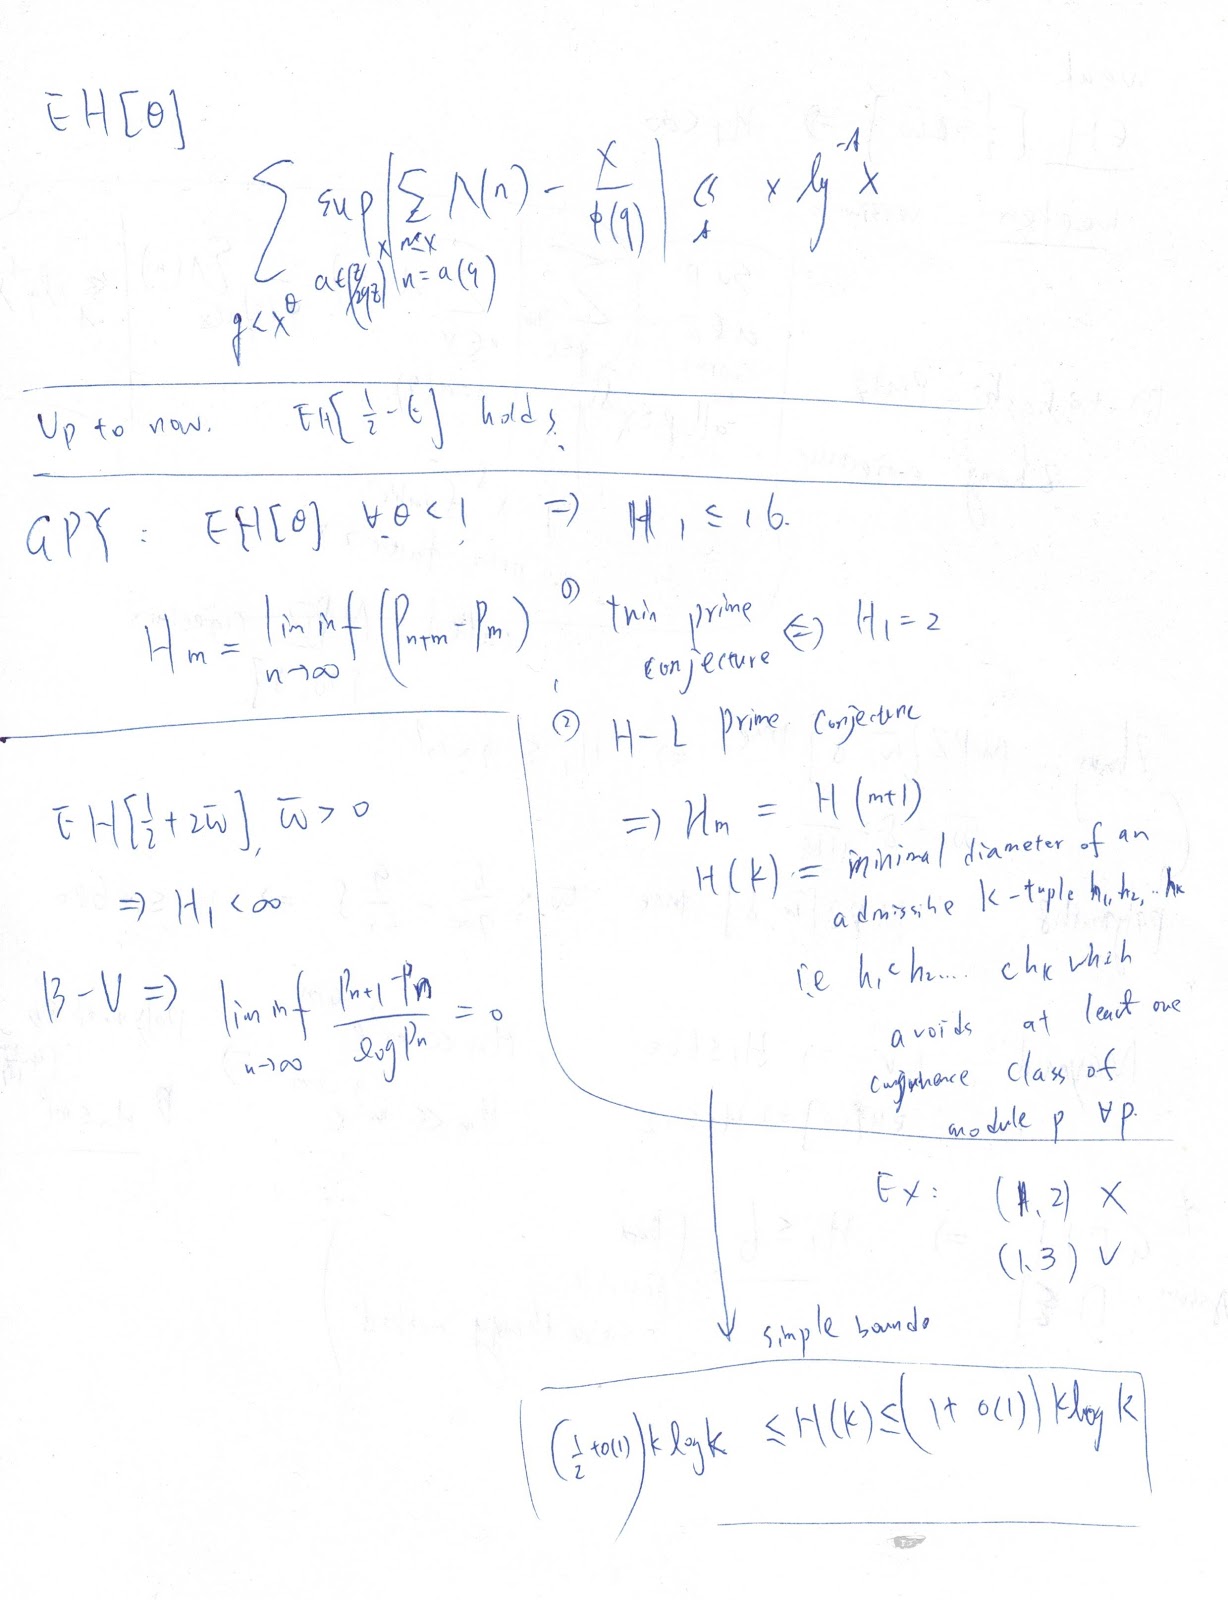 EH[θ]
∑_{q<x^θ} sup_{a∈(Z/qZ)^x} | ∑_{n≤x, n=a(q)} Λ(n) - x/φ(q) | ≪_A x log^{-A} x
Up to now. EH[1/2 - ε] holds.
GPY: EH[θ] ∀θ<1 ⇒ H_1 ≤ 16.
H_m = lim inf_{n→∞} (P_{n+m} - P_m)
① twin prime conjecture ⇔ H_1 = 2
② H-L prime conjecture
⇒ H_m = H(m+1)
H(k) := minimal diameter of an
admissible k-tuple h_1, h_2, .. h_k
i.e h_1 < h_2 .... < h_k which
avoids at least one
congruence class of
module p ∀p.
EH[1/2 + 2ϖ], ϖ > 0
⇒ H_1 < ∞
B-V ⇒ lim inf_{n→∞} (P_{n+1} - P_n)/(log P_n) = 0
Ex: (1, 2) X
(1, 3) V
simple bounds
(1/2 + o(1)) k log k ≤ H(k) ≤ (1 + o(1)) k log k